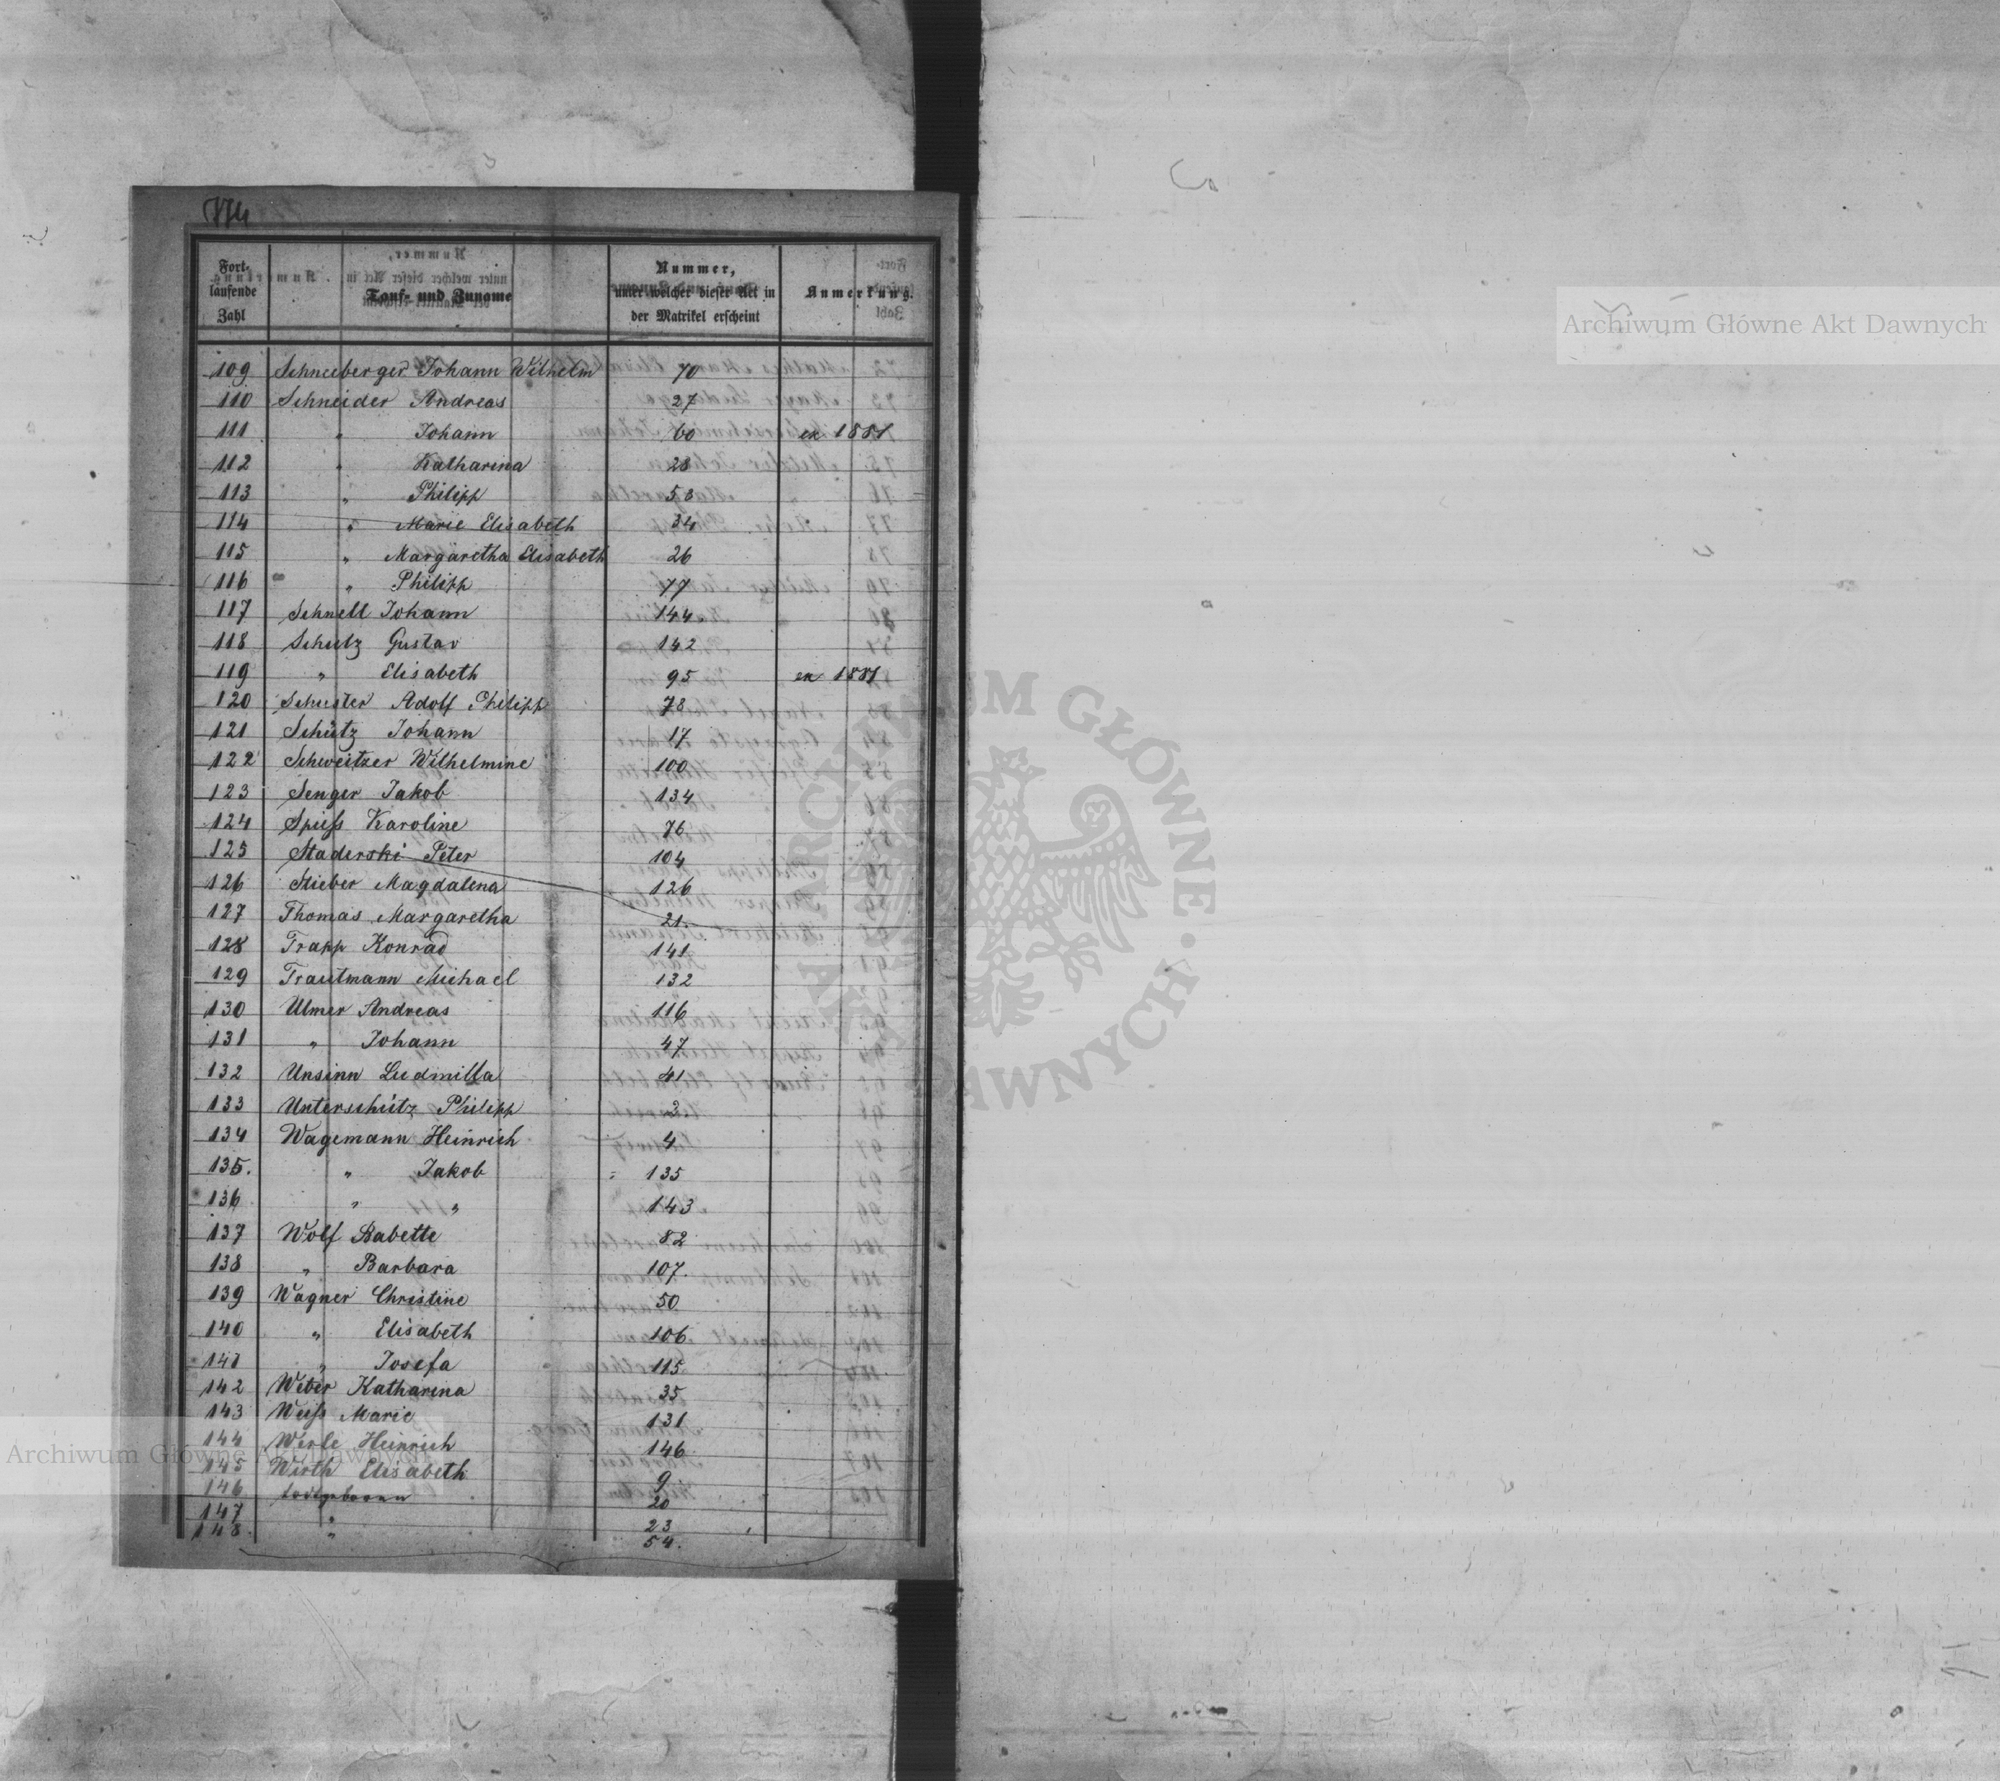 Fort-
laufende
Zahl
Tauf- und Zuname
Nummer,
unter welcher dieser Act in
der Matrikel erscheint
Anmerkung.
109 Schneeberger Johann Wilhelm 70
110 Schneider Andreas 27
111 " Johann 60 ex 1881
112 " Katharina 28
113 " Philipp 58
114 " Marie Elisabeth 34
115 " Margaretha Elisabeth 26
116 " Philipp 77
117 Schnell Johann 144
118 Schutz Gustav 142
119 " Elisabeth 95 ex 1881
120 Schuster Adolf Philipp 78
121 Schütz Johann 17
122 Schweitzer Wilhelmine 100
123 Senger Jakob 134
124 Spiess Karoline 76
125 Staderski Peter 104
126 Stieber Magdalena 126
127 Thomas Margaretha 21.
128 Trapp Konrad 141
129 Trautmann Michael 132
130 Ulmer Andreas 116
131 " Johann 47
132 Unsinn Ludmilla 41
133 Unterschütz Philipp 3.
134 Wagemann Heinrich 4
135. " Jakob 135
136 " " 143
137 Wolf Babette 82
138 " Barbara 107.
139 Wagner Christine 50
140 " Elisabeth 106
141 " Josefa 115
142 Weber Katharina 35
143 Weiss Marie 131
144 Werle Heinrich 146
145 Wirth Elisabeth 9
146 todtgeboren 20
147 " 23
148. " 54.
Archiwum Główne Akt Dawnych
ARCHIWUM GŁÓWNE AKT DAWNYCH
Archiwum Główne Akt Dawnych